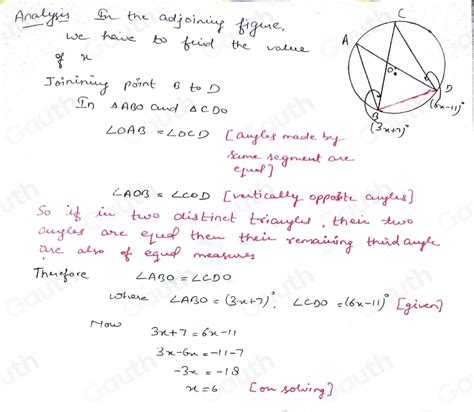 Analysis In the adjoining figure,
we have to find the value
of x
Joinining point B to D
In △ABO and △CDO
∠OAB = ∠OCD [angles made by
same segment are
equal]
∠AOB = ∠COD [vertically opposite angles]
So if in two distinct triangles, their two
angles are equal then their remaining third angle
are also of equal measures
Therefore ∠ABO = ∠CDO
where ∠ABO = (3x+7)°, ∠CDO = (6x-11)° [given]
Now 3x+7 = 6x-11
3x-6x = -11-7
-3x = -18
x = 6 [on solving]
C
A
O
D
(6x-11)°
B
(3x+7)°
Gauth